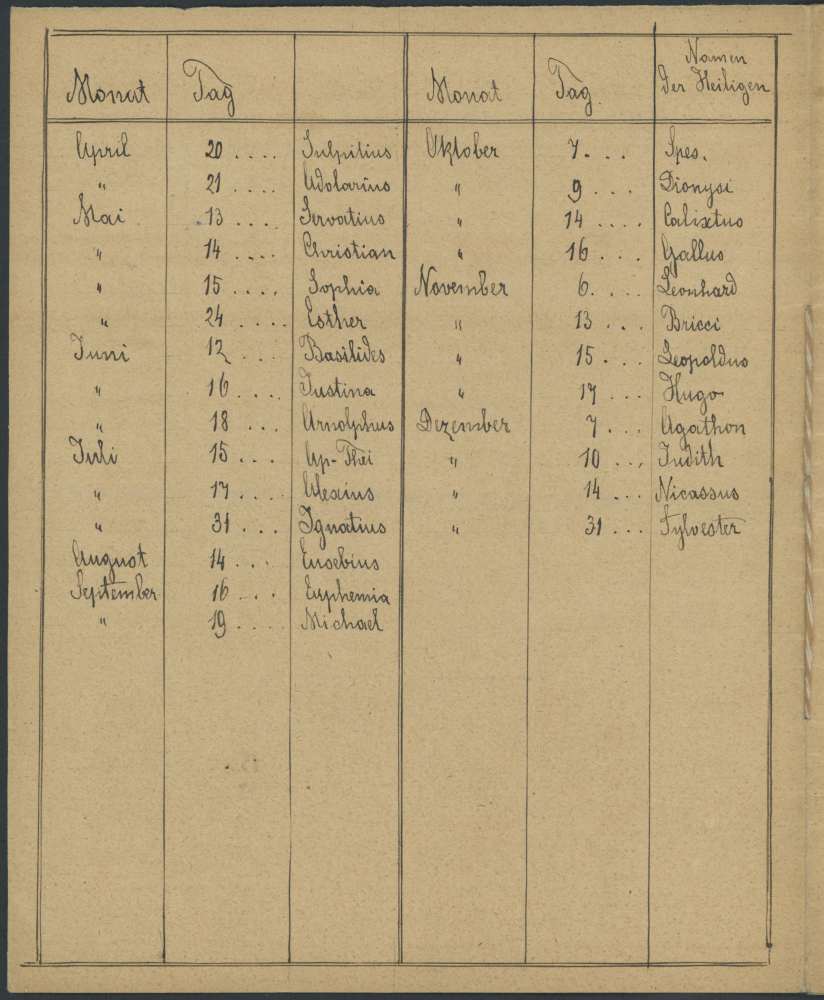 Monat Tag Monat Tag Namen der Heiligen
April 20 .... Sulpitius Oktober 7. ... Spes.
" 21 .... Adolarius " 9 ... Dionysi
Mai .13 .... Servatius " 14 .... Calixtus
" 14 .... Christian " 16 ... Gallus
" 15 .... Sophia November 6. ... Leonhard
" 24 .... Esther " 13 ... Bricci
Juni 12 ... Basilides " 15 ... Leopoldus
" 16 .... Justina " 17 ... Hugo
" 18 ... Arnolphus Dezember 7 ... Agathon
Juli 15 ... Ap-Thei " 10 ... Judith
" 17 .... Alexius " 14 ... Nicassus
" 31 ... Ignatius " 31 ... Sylvester
August 14 ... Eusebius
September 16 ... Euphemia
" 19 .... Michael